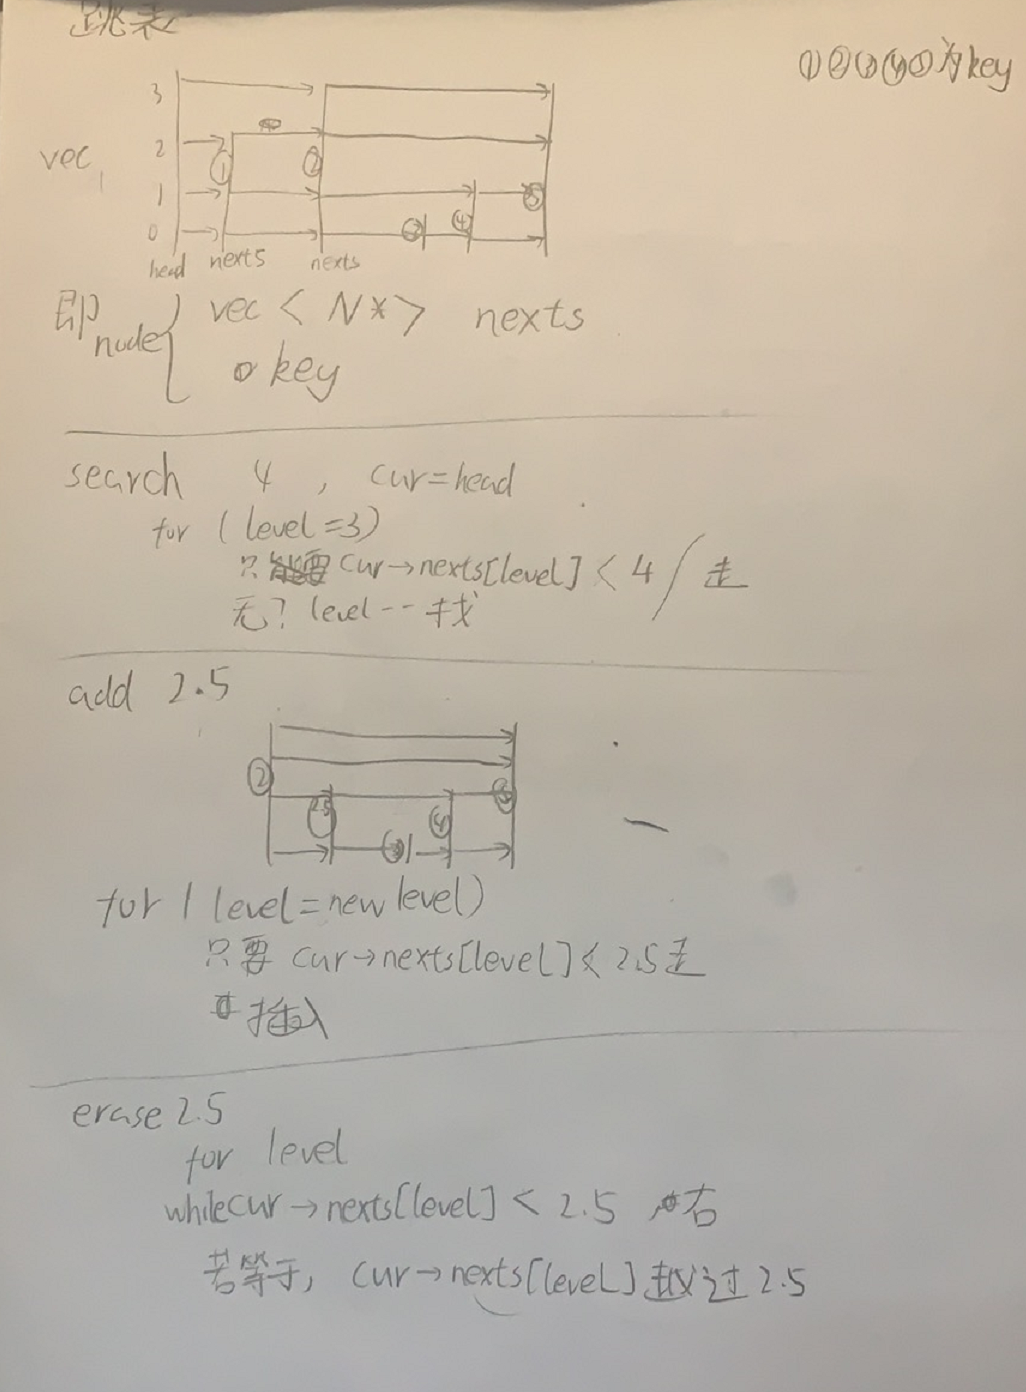 跳表
①②③④⑤为key
3
vec 2
1
0
① ② ③ ④ ⑤
head nexts nexts
即node{ vec<N*> nexts
key
search 4, cur=head
for (level=3)
只要 cur→nexts[level]<4 / 走
无? level-- 找
add 2.5
② 2.5 ③ ④ ⑤
for (level=new level)
只要 cur→nexts[level]<2.5走
插入
erase 2.5
for level
while cur→nexts[level]<2.5 右
若等于, cur→nexts[level]越过2.5